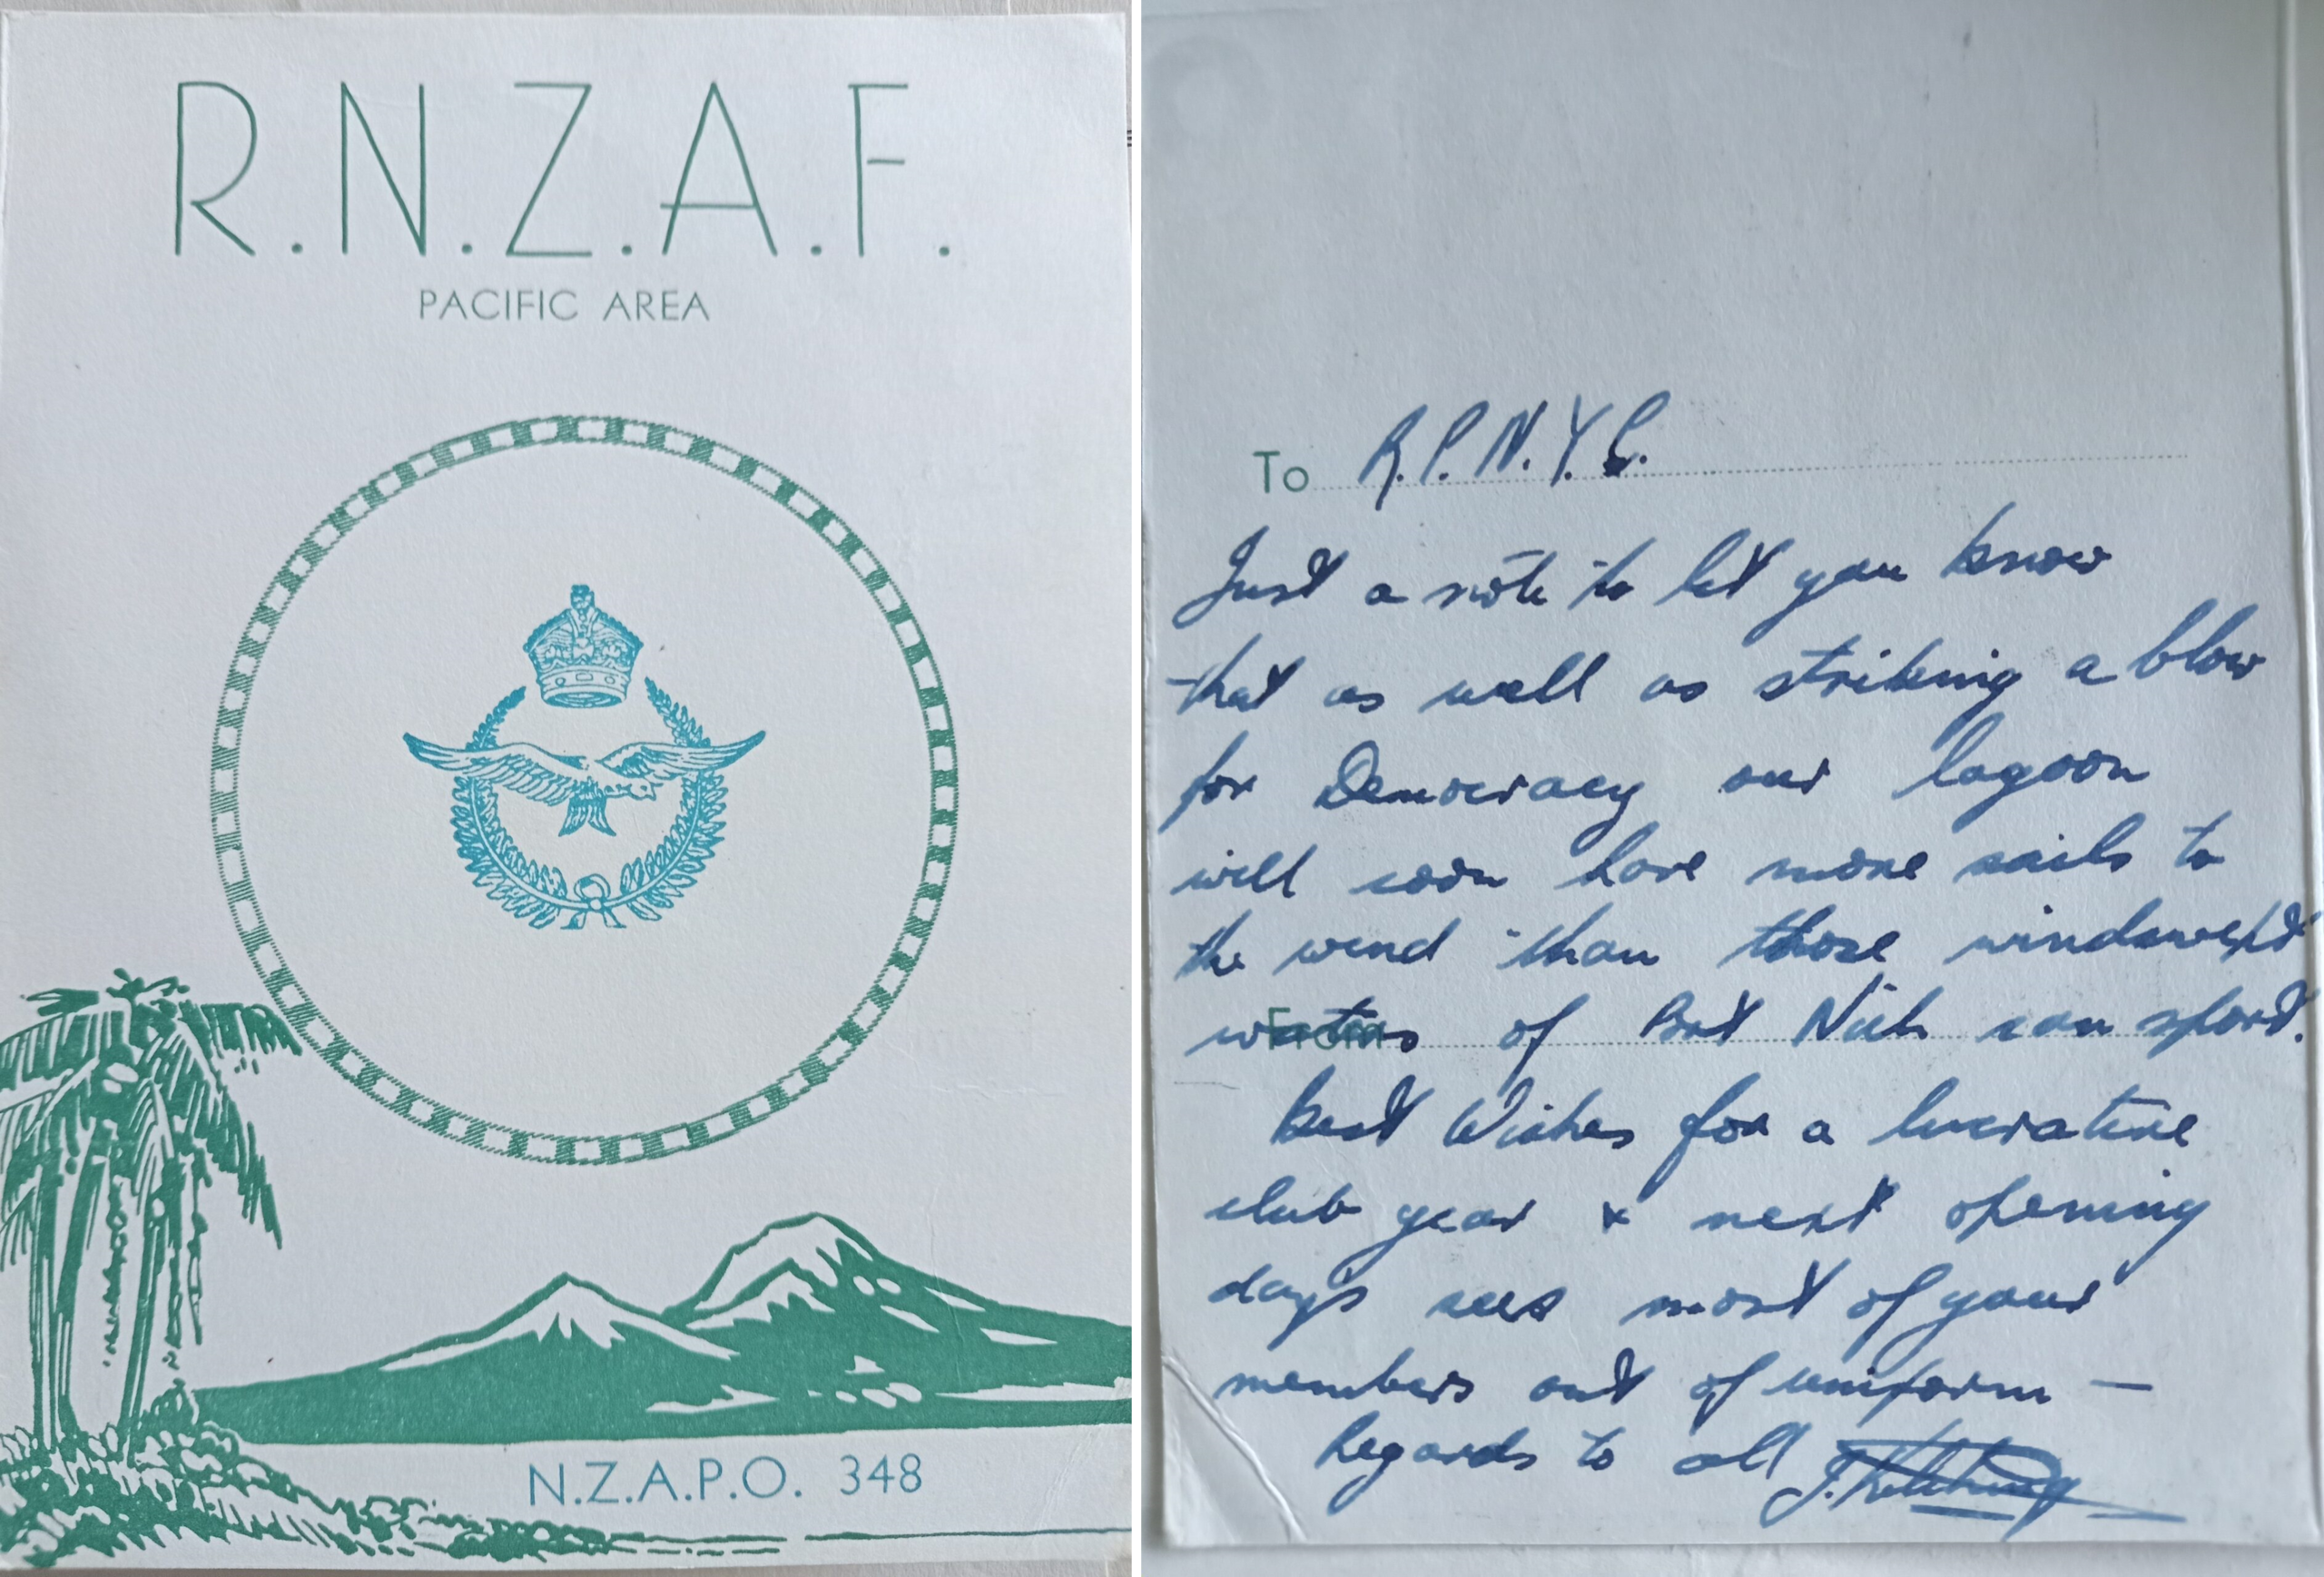 R.N.Z.A.F.
PACIFIC AREA
N.Z.A.P.O. 348
To R.P.N.Y.C.
Just a note to let you know
that as well as striking a blow
for Democracy our lagoon
will soon have more sails to
the wind than those windswept
waters of Port Nich can sport.
From
Best Wishes for a lucrative
club year & next opening
days sees most of your
members out of uniform —
Regards to all